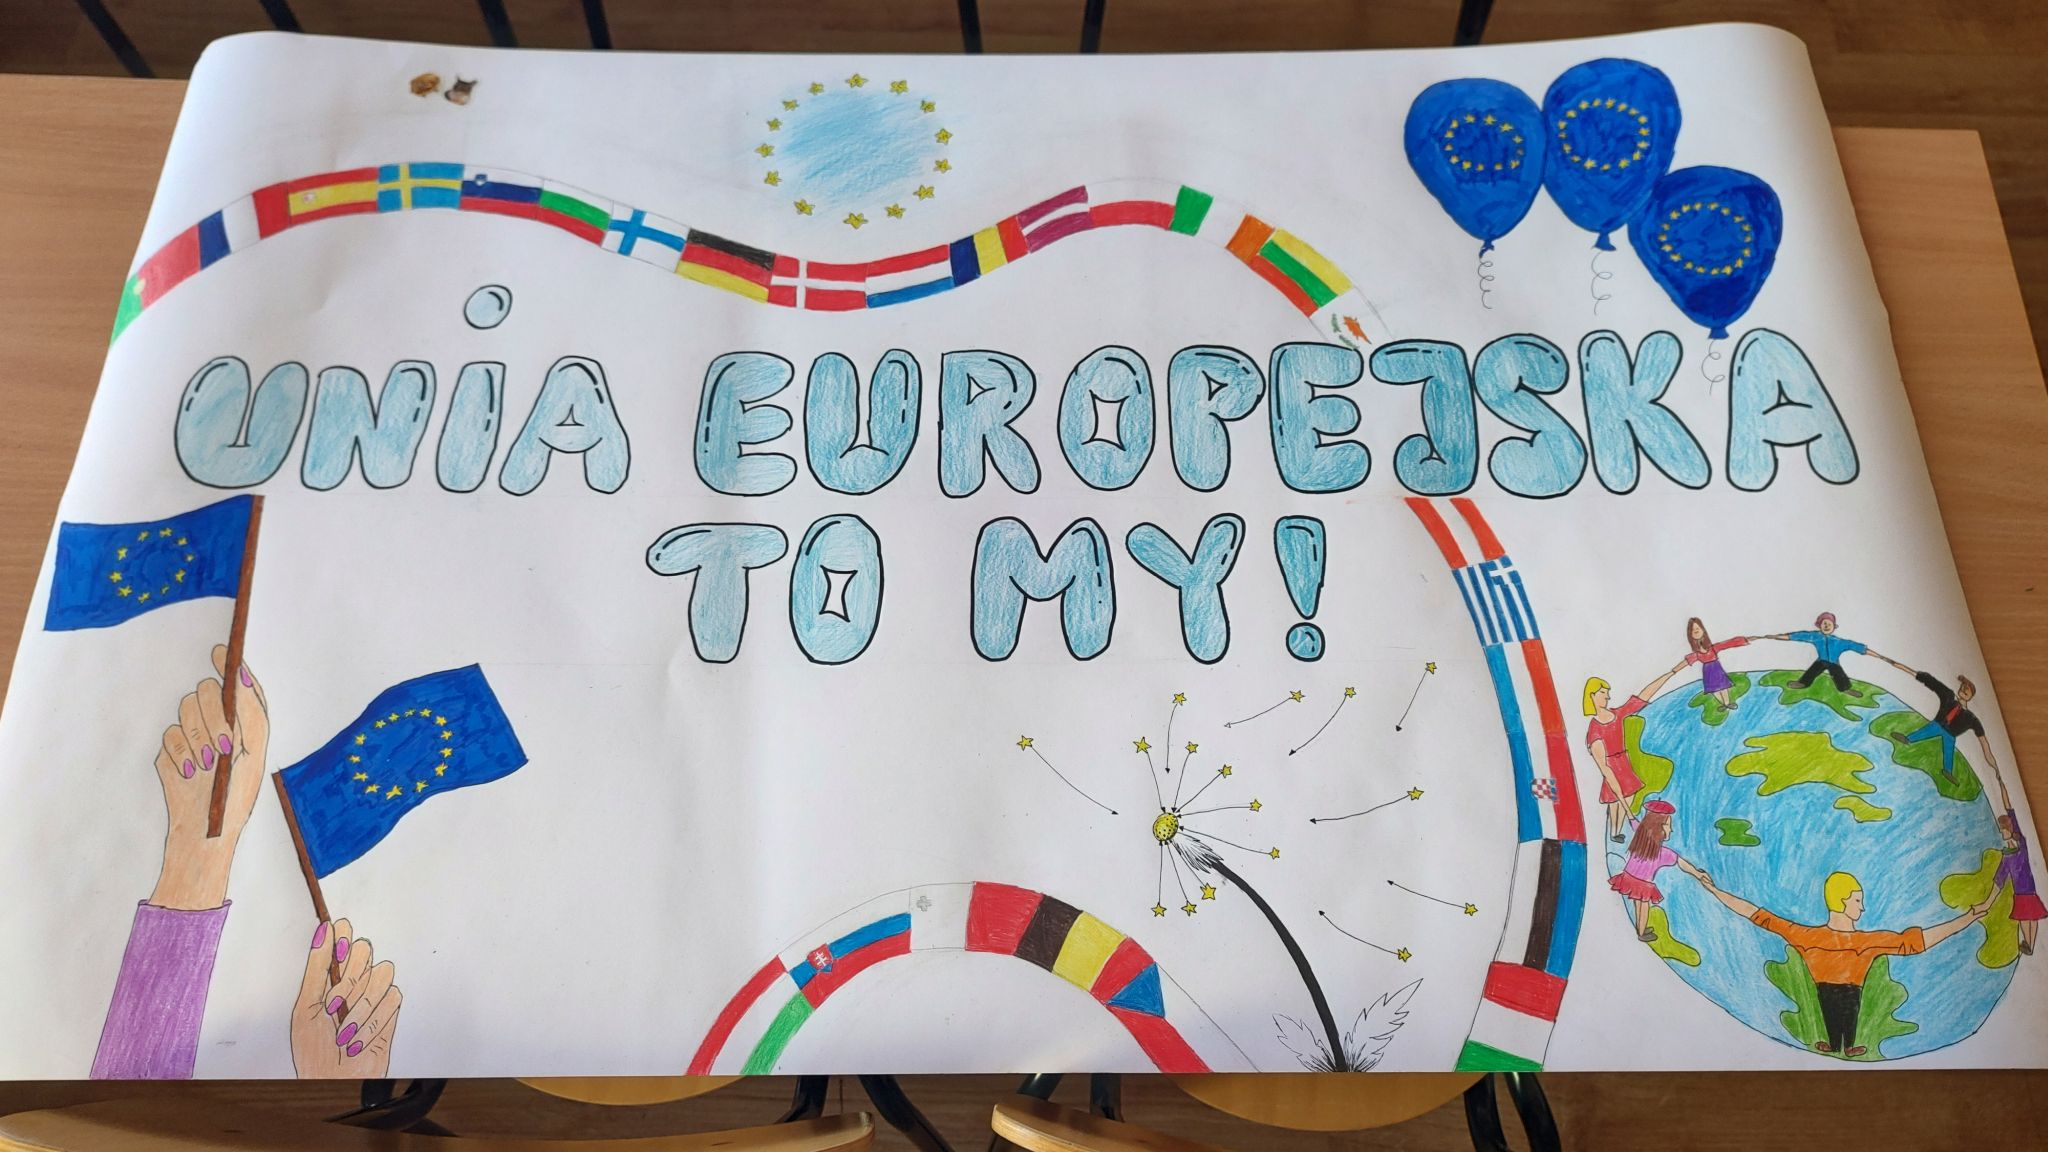 UNiA EUROPEJSKA
TO MY!